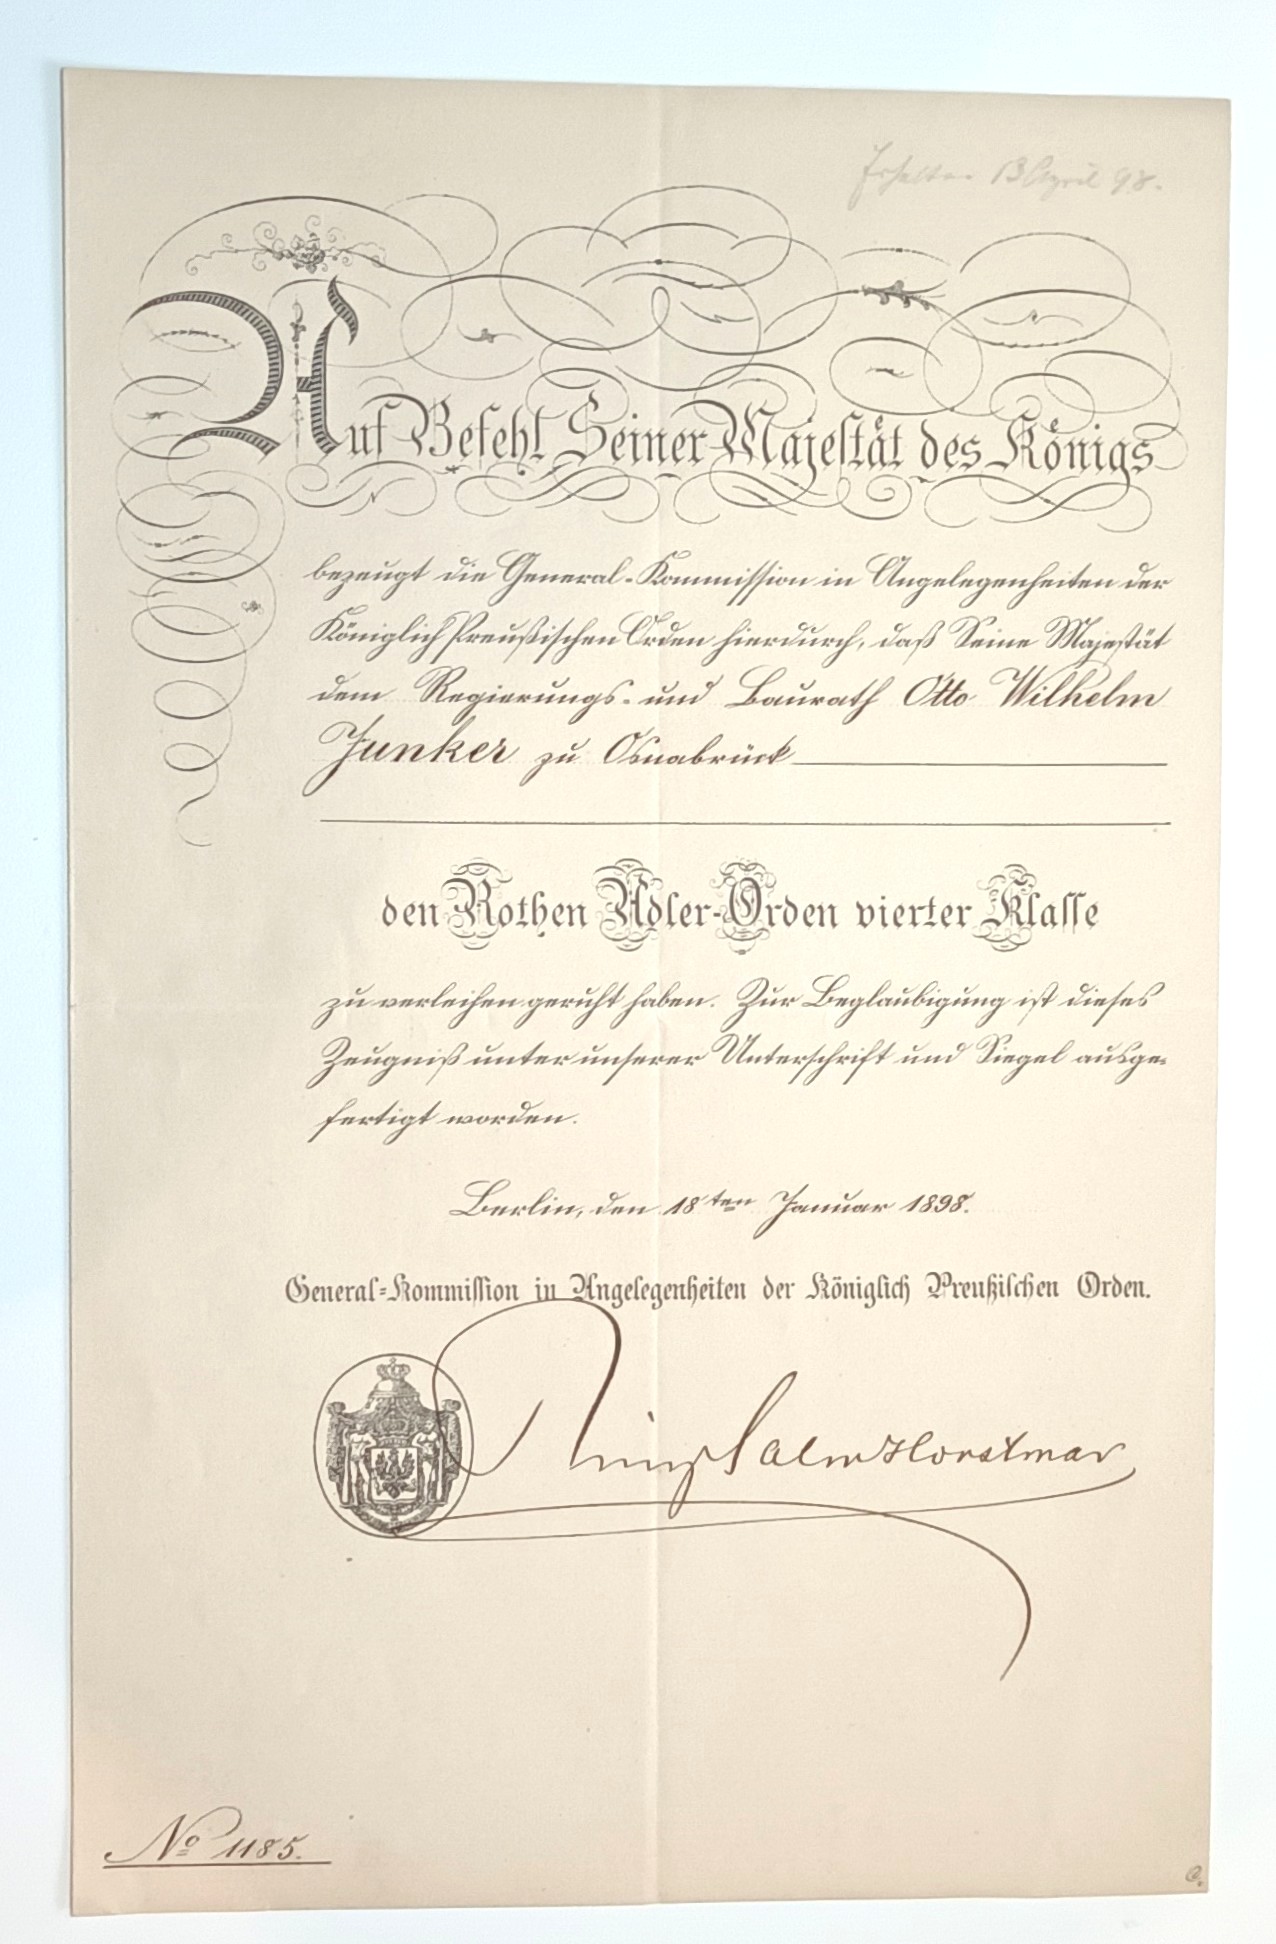 Erhalten 13 April 98.
Auf Befehl Seiner Majestät des Königs
bezeugt die General-Kommission in Angelegenheiten der
Königlich Preußischen Orden hierdurch, daß Seine Majestät
dem Regierungs- und Baurath Otto Wilhelm
Junker zu Osnabrück
den Rothen Adler-Orden vierter Klasse
zu verleihen geruht haben. Zur Beglaubigung ist dieses
Zeugniß unter unserer Unterschrift und Siegel ausge-
fertigt worden.
Berlin, den 18ten Januar 1898.
General-Kommission in Angelegenheiten der Königlich Preußischen Orden.
Prinz Salm Horstmar
No 1185.
C.